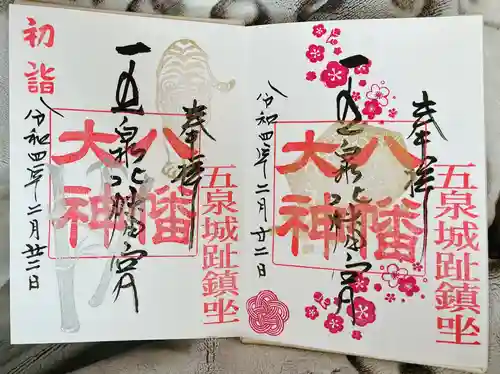 奉拝
五泉城趾鎮坐
五泉八幡宮
八幡
大神
令和四年二月廿二日
初詣
奉拝
五泉城趾鎮坐
五泉八幡宮
八幡
大神
令和四年二月廿二日